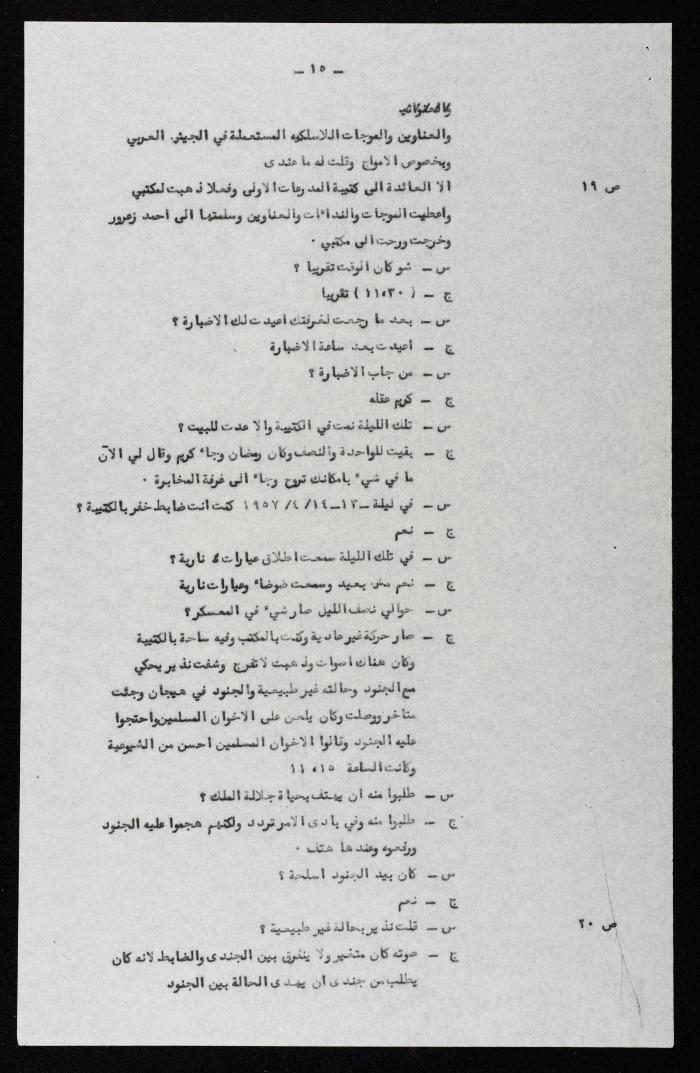 - ١٥ -
والعناوين والموجات اللاسلكيه المستعملة في الجيش العربي
وبخصوص الامواج وقلت له ما عندى
الا العائدة الى كتيبة المدرعات الاولى وفعلا ذهبت لمكتبي
ص ١٩
واعطيت الموجات والنداءات والعناوين وسلمتها الى احمد زعرور
وخرجت ورحت الى مكتبي .
س - شو كان الوقت تقريبا ؟
ج - ( ١١،٣٠ ) تقريبا
س - بعد ما رجعت لغرفتك اعيدت لك الاضبارة ؟
ج - اعيدت بعد ساعة الاضبارة
س - من جاب الاضبارة ؟
ج - كريم عقله
س - تلك الليلة نمت في الكتيبة والا عدت للبيت ؟
ج - بقيت للواحدة والنصف وكان رمضان وجاء كريم وقال لي الآن
ما في شيء بامكانك تروح وجاء الى غرفة المخابرة .
س - في ليلة - ١٣-١٤/ ٤/ ١٩٥٧ كنت انت ضابط خفر بالكتيبة ؟
ج - نعم
س - في تلك الليلة سمعت اطلاق عيارات نارية ؟
ج - نعم مش بعيد وسمعت ضوضاء وعيارات نارية
س - حوالي نصف الليل صار شيء في المعسكر ؟
ج - صار حركة غير عادية وكنت بالمكتب وفيه ساحة بالكتيبة
وكان هناك اصوات وذهبت لاتفرج وشفت نذير يحكي
مع الجنود وحالته غير طبيعية والجنود في هيجان وجئت
متاخر ووصلت وكان يلعن على الاخوان المسلمين واحتجوا
عليه الجنود وقالوا الاخوان المسلمين احسن من الشيوعية
وكانت الساعة ١١،١٥
س - طلبوا منه ان يهتف بحياة جلالة الملك ؟
ج - طلبوا منه وفي بادى الامر تردد ولكنهم هجموا عليه الجنود
ورفعوه وعندها هتف .
س - كان بيد الجنود اسلحة ؟
ج - نعم
س - قلت نذير بحالة غير طبيعية ؟
ص ٢٠
ج - صوته كان متغير ولا ينفرق بين الجندى والضابط لانه كان
يطلب من جندى ان يهدى الحالة بين الجنود